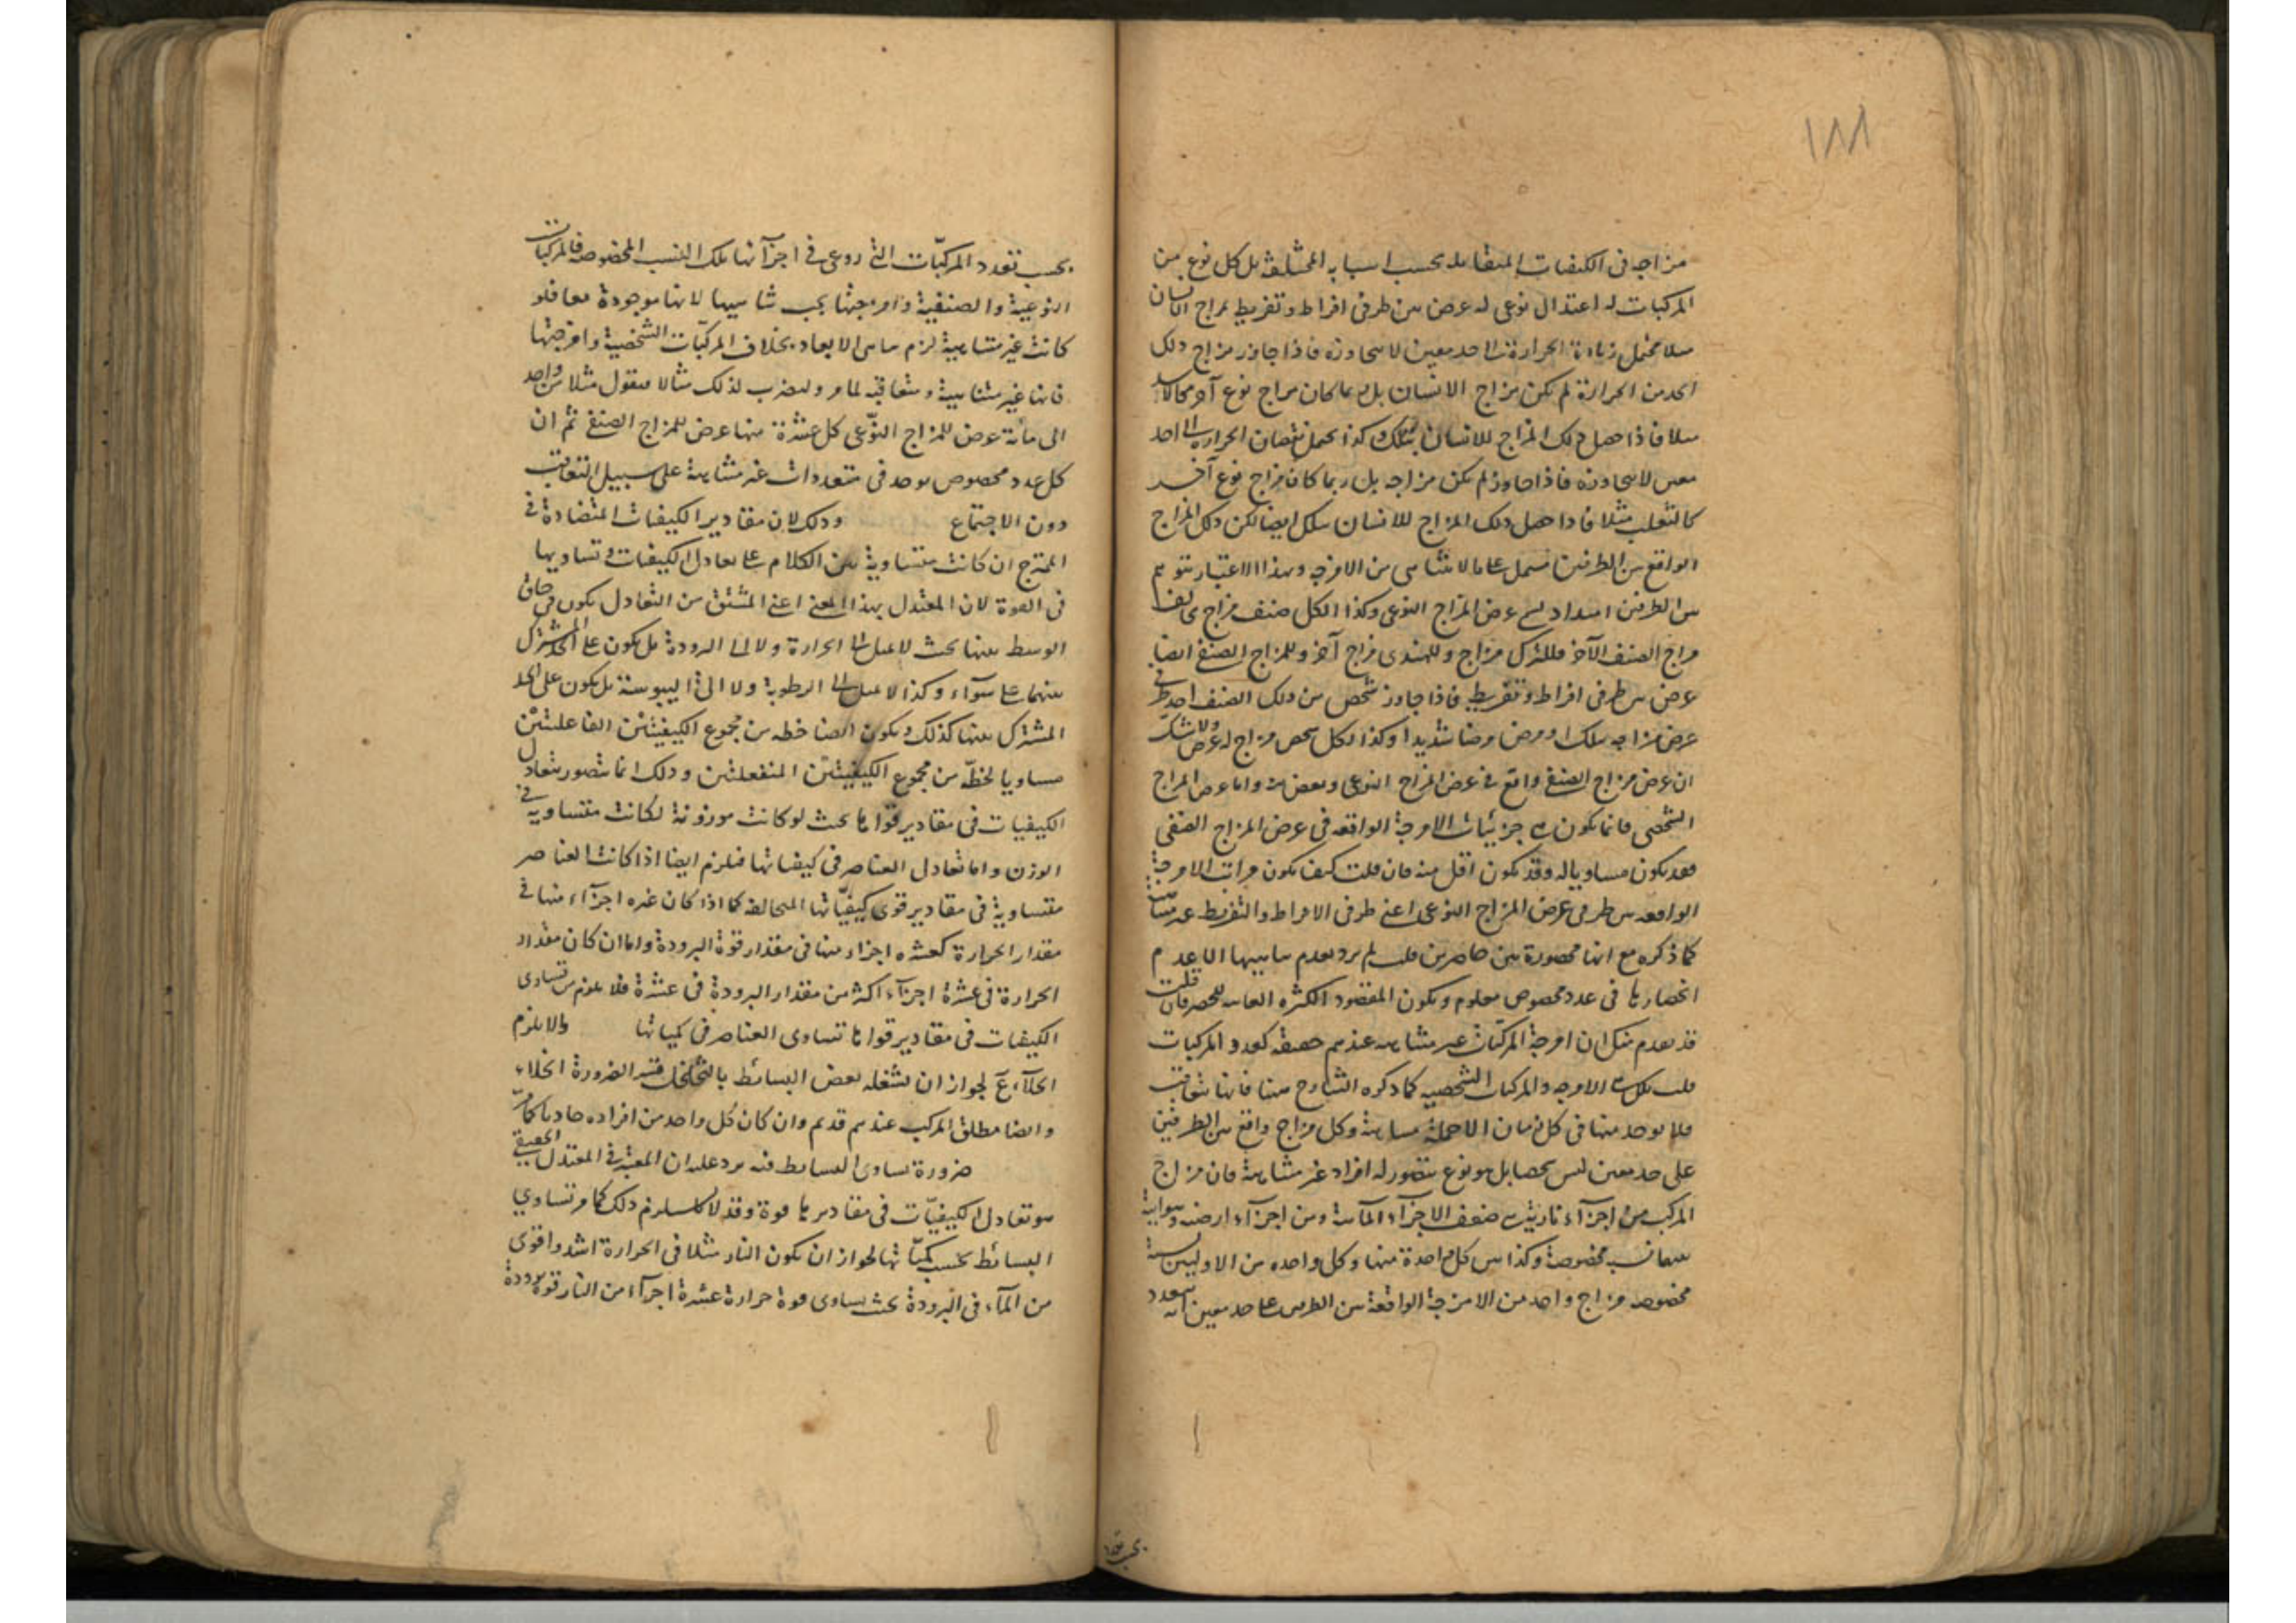 ١٨١
مزاجه فى الكيفيات المتقابله بحسب اسبابه المختلفة بل كل نوع من
المركبات له اعتدال نوعى له عرض بين طرفى افراط وتفريط مزاج الانسان
مثلا يحتمل زيادة الحرارة الى حد معين لا يتجاوزه فاذا جاوز مزاج ذلك
الحد من الحرارة لم يكن مزاج الانسان بل ربما كان مزاج نوع آخر كالاسد
مثلا فاذا حصل ذلك المزاج للانسان يهلك وكذا يحتمل نقصان الحرارة الى حد
معين لا يتجاوزه فاذا جاوز لم يكن مزاجه بل ربما كان مزاج نوع آخر
كالثعلب مثلا فاذا حصل ذلك المزاج للانسان يهلك ايضا لكن ذلك المزاج
الواقع بين الطرفين يشتمل على ما لا يتناهى من الامزجه وبهذا الاعتبار يتوهم
بين الطرفين امتداد عرض المزاج النوعى وكذا لكل صنف مزاج يخالف
مزاج الصنف الآخر فللترك مزاج وللهندى مزاج آخر وللمزاج الصنفى ايضا
عرض بين طرفى افراط وتفريط فاذا جاوز شخص من ذلك الصنف احد طرفى
عرض مزاجه يهلك او مرض مرضا شديدا وكذا لكل شخص مزاج له عرض ولا شك
ان عرض مزاج الصنفى واقع فى عرض المزاج النوعى وبعض منه واما عرض المزاج
الشخصى فانما يكون من جزئيات الامزجة الواقعه فى عرض المزاج الصنفى
فقد يكون مساويا له وقد يكون اقل منه فان قلت كيف يكون مراتب الامزجة
الواقعه بين طرفى عرض المزاج النوعى اعنى طرفى الافراط والتفريط غير متناهية
كما ذكره مع انها محصورة بين حاصرين قلت لم يرد بعدم تناهيها الا عدم
انحصارها فى عدد مخصوص معلوم ويكون المقصود الكثره للحصر فان قلت
قد تقدم منك ان امزجة المركبات غير متناهيه عندهم حقيقه كعدد المركبات
قلت تلك هى الامزجه والمركبات الشخصيه كما ذكره الشارح هنا فانها تتعاقب
فلا يوجد منها فى كل زمان الا جملة متناهية وكل مزاج واقع بين الطرفين
على حد معين ليس شخصا بل هو نوع يتصور له افراد غير متناهية فان مزاج
المركب من اجزآء نارية هى ضعف الاجزآء المآئية ومن اجزآء ارضيه وهوائية
بينهما نسب مخصوصة وكذا بين كل واحدة منها وكل واحده من الاوليين نسبة
مخصوصه مزاج واحد من الامزجة الواقعة بين الطرفين على حد معين يتعدد
بحسب تعدد
بحسب تعدد المركبّات التى روعى فى اجزآئها تلك النسب المخصوصة فالمركبات
النوعية والصنفية وامزجتها يجب تناهيها لانها موجودة معا فلو
كانت غير متناهية لزم تناهى الابعاد بخلاف المركبات الشخصية وامزجتها
فانها غير متناهية ومتعاقبه لما مر ولنضرب لذلك مثالا فنقول مثلا من واحد
الى مائة عرض للمزاج النوّعى كل عشرة منها عرض للمزاج الصنفى ثم ان
كل عدد مخصوص يوجد فى متعددات غير متناهية على سبيل التعاقب
دون الاجتماع وذلك لان مقادير الكيفيات المتضادة فى
الممتزج ان كانت متساوية بين الكلام على تعادل الكيفيات وتساويها
فى القوة لان المعتدل بهذا المعنى اعنى المشتق من التعادل يكون فى حاق
الوسط بينها بحيث لا يميل الى الحرارة ولا الى البرودة بل يكون على الحد المشترك
بينهما على سوآء وكذا لا يميل الى الرطوبة ولا الى اليبوسة بل يكون على الحد
المشترك بينها كذلك ويكون ايضا حظه من مجموع الكيفيتين الفاعلتين
مساويا لحظّه من مجموع الكيفيتين المنفعلتين وذلك انما يتصور بتعادل
الكيفيات فى مقادير قواها بحيث لو كانت موزونة لكانت متساوية فى
الوزن واما تعادل العناصر فى كيفياتها فيلزم ايضا اذا كانت العناصر
متساوية فى مقادير قوى كيفيّاتها المتخالفه كما اذا كان عشره اجزآء منها فى
مقدار الحرارة كعشره اجزاء منها فى مقدار قوة البرودة واما ان كان مقدار
الحرارة فى عشرة اجزآء اكثر من مقدار البرودة فى عشرة فلا يلزم من تساوى
الكيفيات فى مقادير قواها تساوى العناصر فى كمياتها والا يلزم
الخلآء لجواز ان يشغله بعض البسائط بالتخلخل الضرورة الخلاء
وايضا مطلق المركب عندهم قديم وان كان كل واحد من افراده حادثا كما مر
ضرورة تساوى البسائط فيه يرد عليه ان المعتبر فى المعتدل الحقيقى
هو تعادل الكيفيّات فى مقاديرها قوة وقد لا يستلزم ذلك كما مر تساوي
البسائط بحسب كميّاتها لجواز ان يكون النار مثلا فى الحرارة اشد واقوى
من المآء فى البرودة بحيث يساوى قوة حرارة عشرة اجزآء من النار قوة برودة